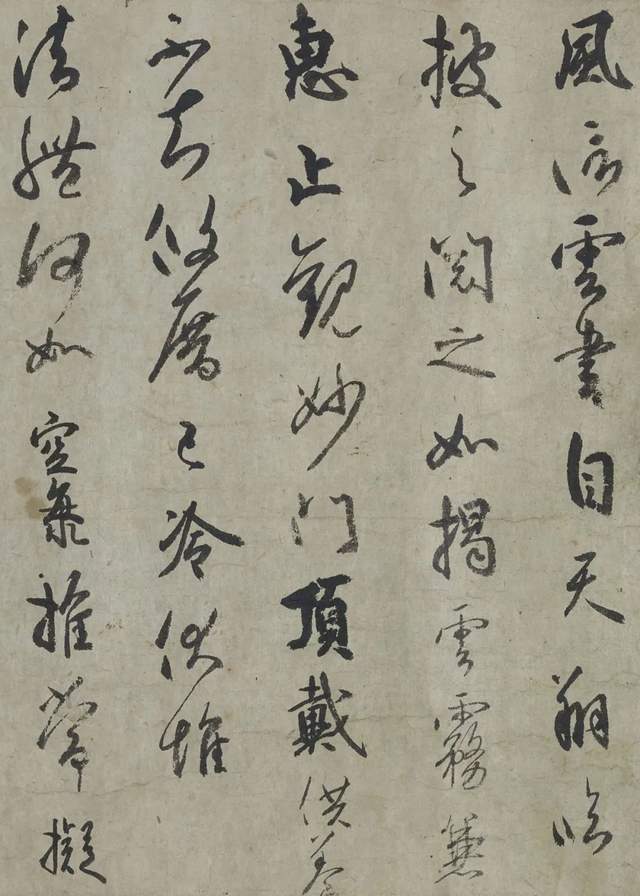 風信雲書自天翔臨
披之閱之如揭雲霧兼
惠止觀妙門頂戴供養
不知攸厝已冷伏惟
法體何如空海推常擬